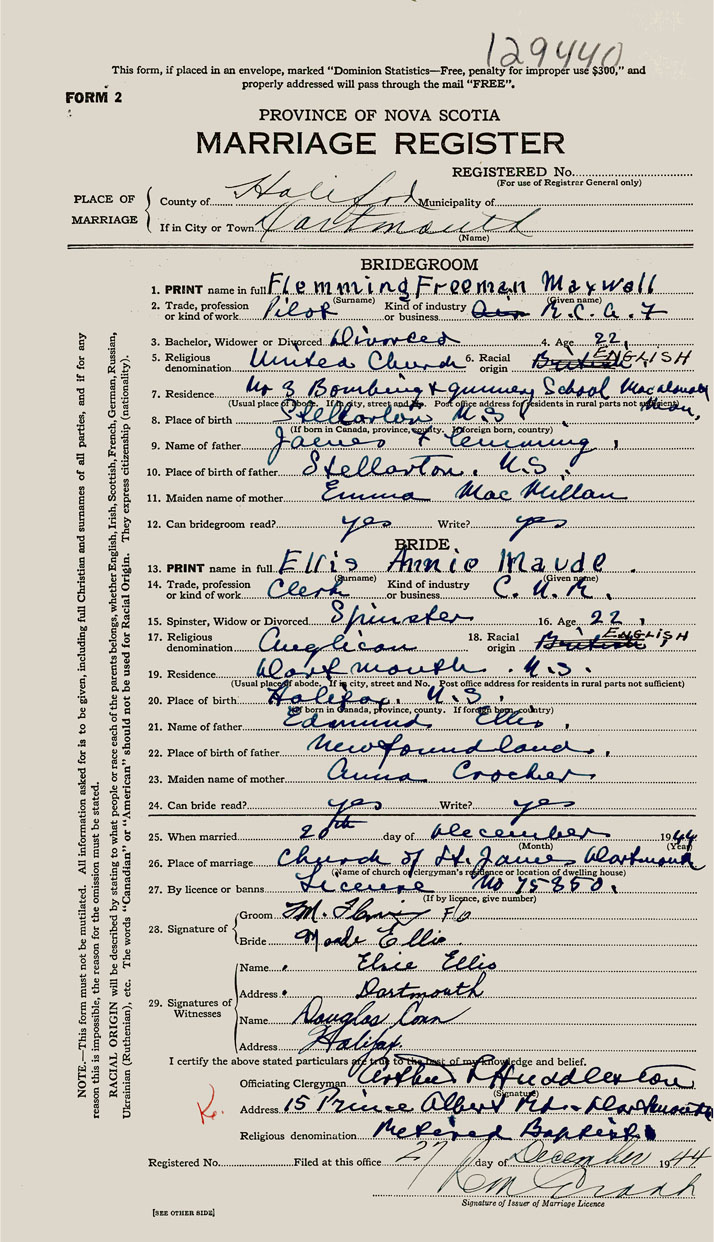 129440
This form, if placed in an envelope, marked "Dominion Statistics—Free, penalty for improper use $300," and
properly addressed will pass through the mail "FREE".
FORM 2
PROVINCE OF NOVA SCOTIA
MARRIAGE REGISTER
REGISTERED No.
(For use of Registrar General only)
PLACE OF MARRIAGE
County of Halifax Municipality of
If in City or Town Dartmouth
(Name)
BRIDEGROOM
1. PRINT name in full Flemming Freeman Maxwell
(Surname) (Given name)
2. Trade, profession or kind of work Pilot Kind of industry or business R.C.A.F
3. Bachelor, Widower or Divorced Divorced 4. Age 22
5. Religious denomination United Church 6. Racial origin British ENGLISH
7. Residence No 3 Bombing & gunnery School Macdonald Man.
(Usual place of abode. If in city, street and No. Post office address for residents in rural parts not sufficient)
8. Place of birth Stellarton N.S
(If born in Canada, province, county. If foreign born, country)
9. Name of father James Flemming
10. Place of birth of father Stellarton. N.S.
11. Maiden name of mother Emma MacMillan
12. Can bridegroom read? yes Write? yes
BRIDE
13. PRINT name in full Ellis Annie Maude.
(Surname) (Given name)
14. Trade, profession or kind of work Clerk Kind of industry or business C.N.R.
15. Spinster, Widow or Divorced Spinster 16. Age 22
17. Religious denomination Anglican 18. Racial origin British ENGLISH
19. Residence Dartmouth. N.S.
(Usual place of abode. If in city, street and No. Post office address for residents in rural parts not sufficient)
20. Place of birth Halifax. N.S.
(If born in Canada, province, county. If foreign born, country)
21. Name of father Edmund Ellis
22. Place of birth of father Newfoundland
23. Maiden name of mother Anna Crocker
24. Can bride read? yes Write? yes
25. When married 20th day of December 1944
(Month) (Year)
26. Place of marriage Church of St. James Dartmouth
(Name of church or clergyman's residence or location of dwelling house)
27. By licence or banns License No 75850.
(If by licence, give number)
28. Signature of
Groom F.M. Flemming F/O
Bride Maude Ellis
29. Signatures of Witnesses
Name Elsie Ellis
Address Dartmouth
Name Douglas Conn
Address Halifax
I certify the above stated particulars are true to the best of my knowledge and belief.
Officiating Clergyman Arthur Huddleston
(Signature)
Address 15 Prince Albert Rd - Dartmouth
Religious denomination Retired Baptist
Registered No. Filed at this office 27 day of December 1944
Signature of Issuer of Marriage Licence
[SEE OTHER SIDE]
NOTE.—This form must not be mutilated. All information asked for is to be given, including full Christian and surnames of all parties, and if for any
reason this is impossible, the reason for the omission must be stated.
RACIAL ORIGIN will be described by stating to what people or race each of the parents belongs, whether English, Irish, Scottish, French, German, Russian,
Ukrainian (Ruthenian), etc. The words "Canadian" or "American" should not be used for Racial Origin. They express citizenship (nationality).